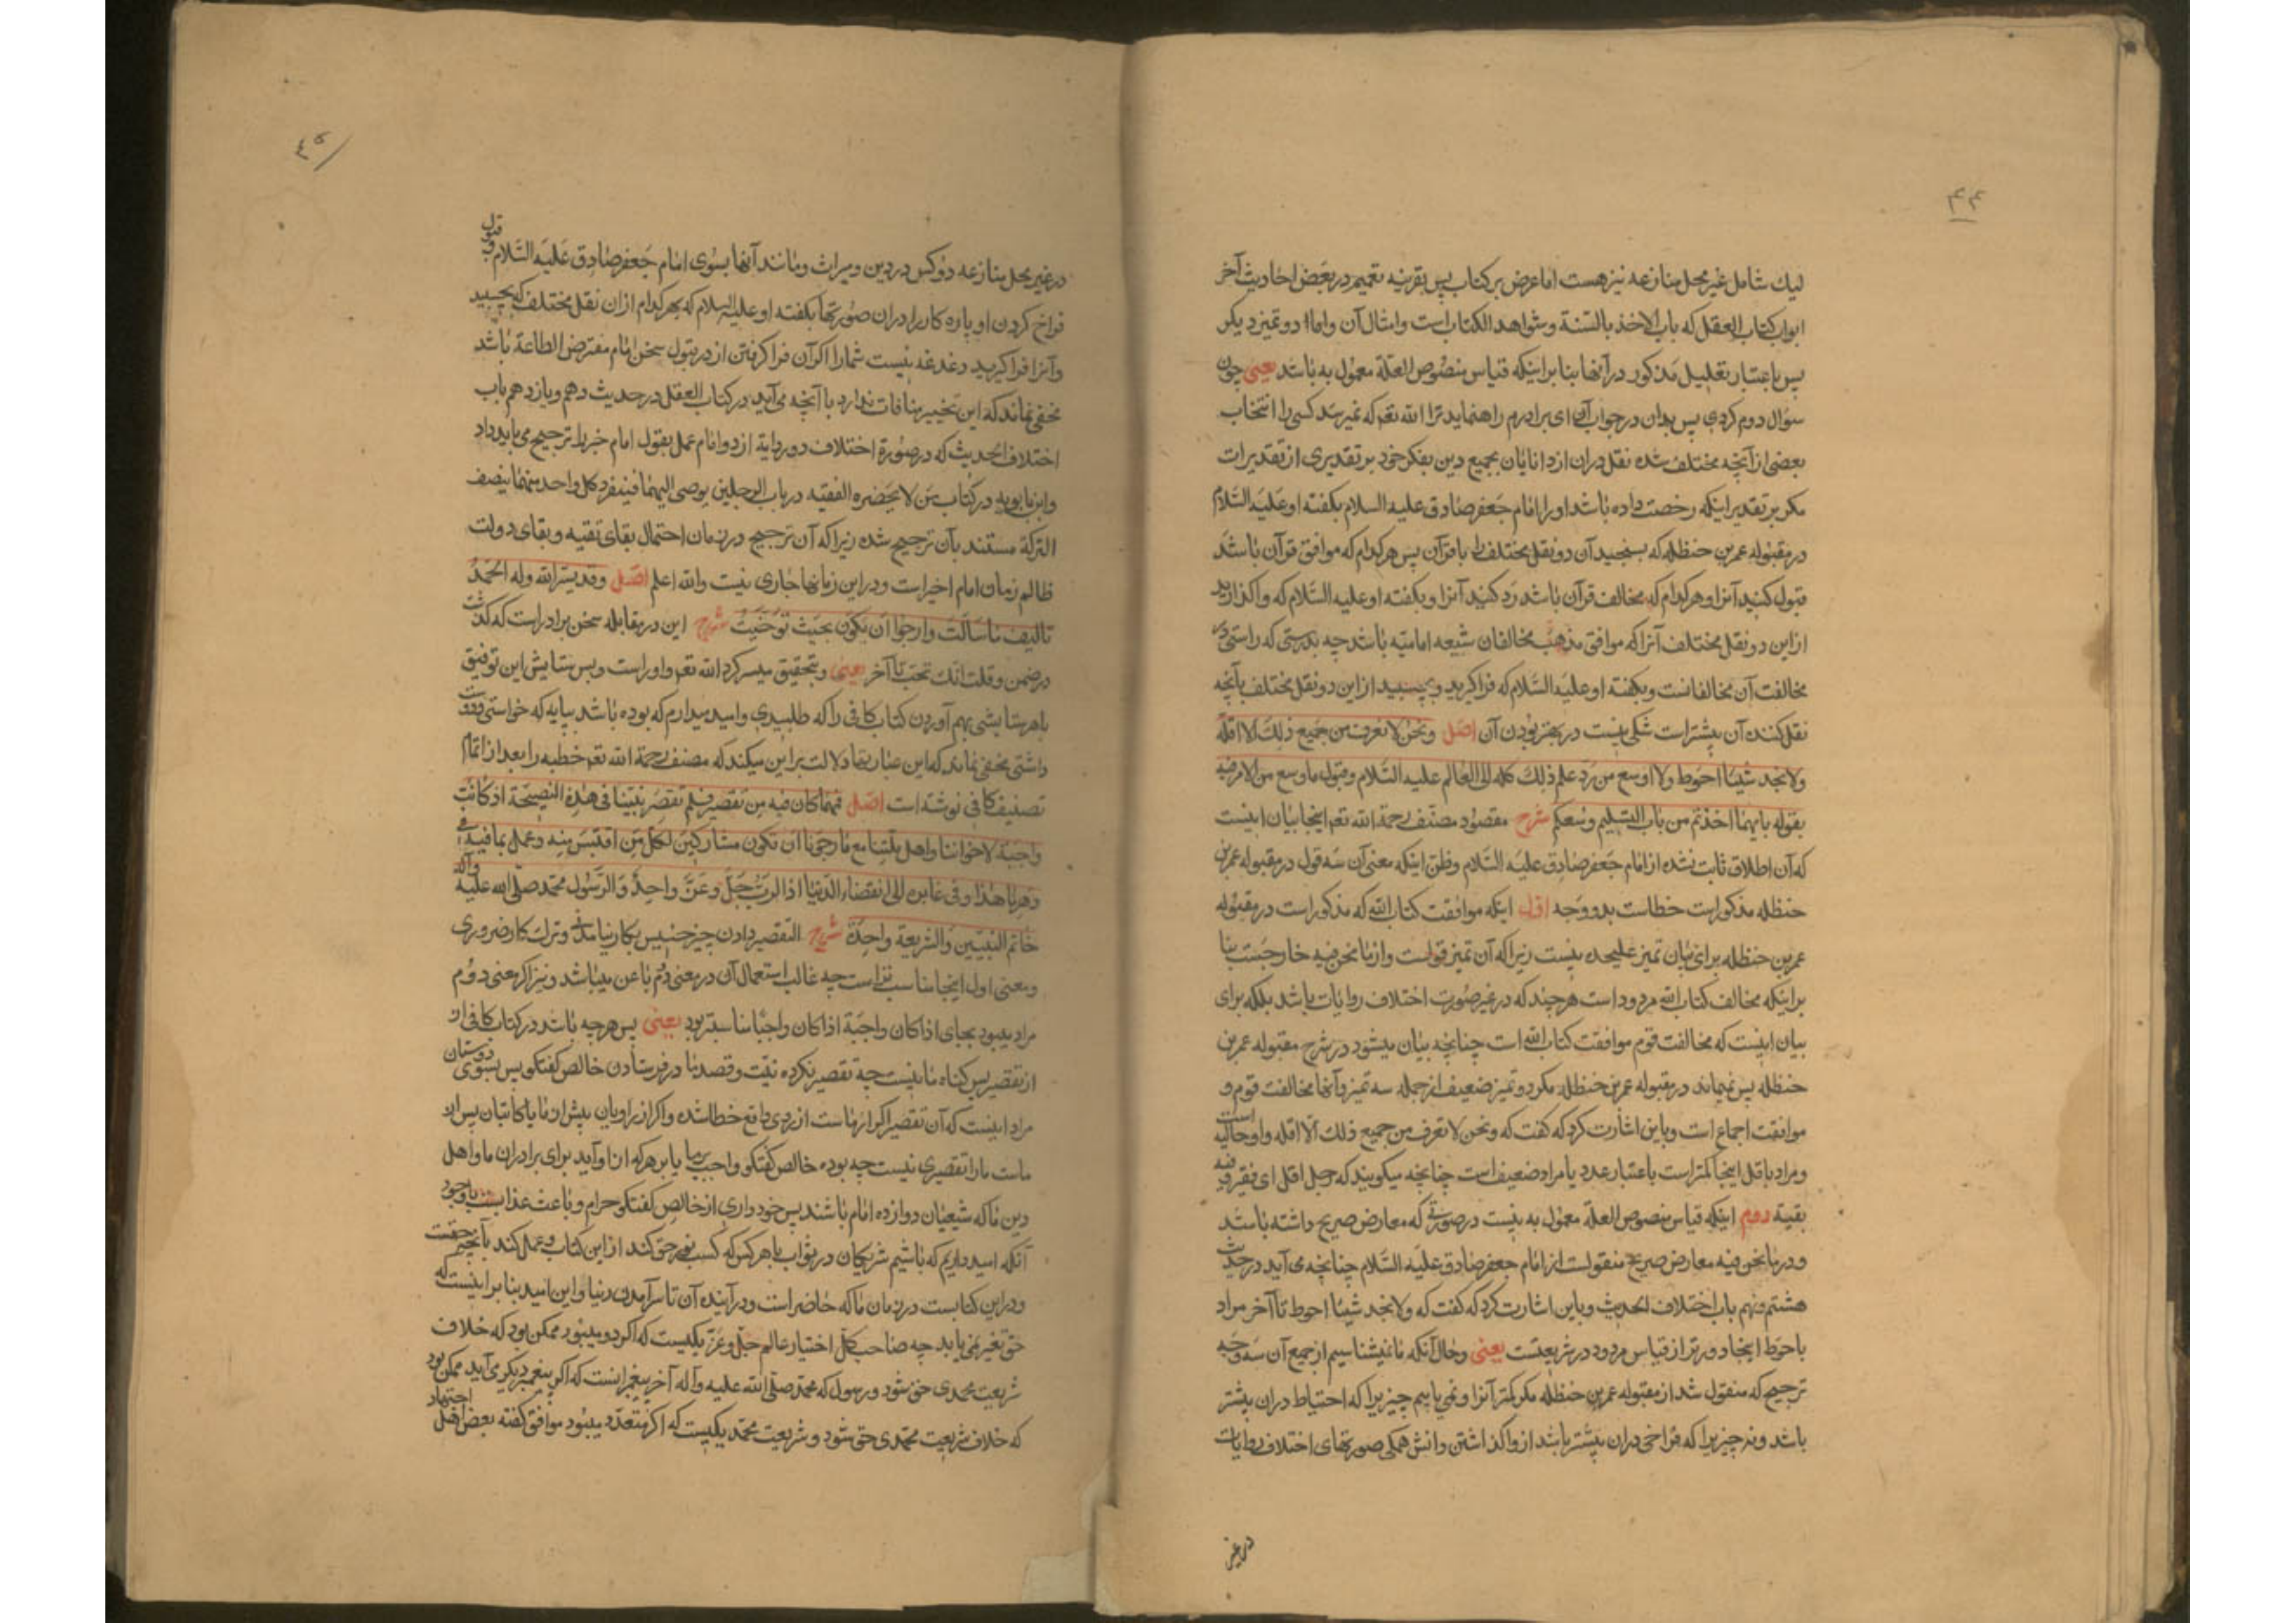 ۴۴
لیك شامل غیر محل منازعه نیز هست اما عرض بر کتاب پس بقرینه تعمیم در بعض احادیث آخر
ابواب کتاب العقل که باب الاخذ بالسّنة و شواهد الکتاب است و امثال آن و اما دو تمیز دیکر
پس باعتبار تعلیل مذکور در آنها بنا بر اینکه قیاس منصوص العلّة معمول به باشد یعنی چون
سؤال دوم کردی پس بدان در جواب آن ای برادرم راهنماید ترا الله تعم که نمیرسد کسی را انتخاب
بعضی از آنچه مختلف شده نقل دران از دانایان بجمیع دین بفکر خود بر تقدیری از تقدیرات
مکر بر تقدیر اینکه رخصت داده باشد او را امام جعفر صادق علیه السلام بکفته او علیه السّلام
در مقبوله عمر بن حنظله که بسنجید آن دو نقل مختلف را با قرآن پس هر کدام که موافق قرآن باشد
قبول کنید آنرا و هر کدام که مخالف قرآن باشد رد کنید آنرا و بکفته او علیه السّلام که واکذارید
از این دو نقل مختلف آنرا که موافق مذهب مخالفان شیعه امامیّه باشد چه بدرستی که راستی در
مخالفت آن مخالفانست و بکفته او علیه السّلام که فرا کیرید و بچسبید از این دو نقل مختلف بآنچه
نقل کنند آن بیشتر است شکی نیست در بهتر بودن آن اصل و نحن لا نعرف من جمیع ذلك الا اقلّه
ولا نجد شیئا احوط ولا اوسع من ردّ علم ذلك کله الی العالم علیه السّلام و قبول ما وسع من الامر فیه
بقوله بایهما اخذتم من باب التسلیم وسعکم شرح مقصود مصنّف رحمة الله تعم اینجا بیان اینست
که آن اطلاق ثابت نشده از امام جعفر صادق علیه السّلام و ظن اینکه معنی آن سه قول در مقبوله عمر بن
حنظله مذکور است خطاست بدو وجه اوّل اینکه موافقت کتاب الله که مذکور است در مقبوله
عمر بن حنظله برای بیان تمیز علیحده نیست زیرا که آن تمیز قولست و از ما نحن فیه خارجست بنا
بر اینکه مخالف کتاب الله مردود است هر چند که در غیر صورت اختلاف روایات باشد بلکه برای
بیان اینست که مخالفت قوم موافقت کتاب الله است چنانچه بیان میشود در شرح مقبوله عمر بن
حنظله پس نمیماند در مقبوله عمر بن حنظله مکر دو تمیز ضعیف از جمله سه تمیز و آنها مخالفت قوم و
موافقت اجماع است و باین اشارت کرد که کفت که و نحن لا نعرف من جمیع ذلك الا اقله و او حالیه است
و مراد باقل اینجا کمتر است باعتبار عدد یا مراد ضعیف است چنانچه میکویند که رجل اقل ای فقیر و فیه
بقیة دوم اینکه قیاس منصوص العلّه معمول به نیست در صورتی که معارض صریح داشته باشد
و در ما نحن فیه معارض صریح منقولست از امام جعفر صادق علیه السّلام چنانچه می آید در حدیث
هشتم و نهم باب اختلاف الحدیث و باین اشارت کرد که کفت که ولا نجد شیئا احوط تا آخر مراد
باحوط اینجا دورتر از قیاس مردود در شریعتست یعنی و حال آنکه ما نمیشناسیم از جمیع آن سه وجه
ترجیح که منقول شد از مقبوله عمر بن حنظله مکر کمتر آنرا و نمی یابیم چیزیرا که احتیاط دران بیشتر
باشد و نه چیزیرا که فراخی دران بیشتر باشد از واکذاشتن دانش همکی صورتهای اختلاف روایات
در غیر
۴۵
در غیر محل منازعه دو کس در دین و میراث و مانند آنها بسوی امام جعفر صادق علیه السّلام و قبول
فراخ کردن او پاره کار را دران صورتها بکفته او علیه السلام که بهر کدام از ان نقل مختلف که بچسبید
و آنرا فرا کیرید دغدغه نیست شما را اکر آن فرا کرفتن از در قبول سخن امام مفترض الطاعة باشد
مخفی نماند که این تخییر منافات ندارد با آنچه می آید در کتاب العقل در حدیث دهم و یازدهم باب
اختلاف الحدیث که در صورة اختلاف دو روایة از دو امام عمل بقول امام خبر را ترجیح می باید داد
و ابن بابویه در کتاب من لا یحضره الفقیه در باب الرجلین یوصی الیهما فینفرد کل واحد منهما بنصف
الترکة مستند بآن ترجیح شده زیرا که آن ترجیح در زمان احتمال بقای تقیه و بقای دولت
ظالم زمان امام اخیر است و در این زمانها جاری نیست والله اعلم اصل وقد یسّر الله وله الحمد
تالیف ما سألت وارجوا ان یکون بحیث توخیت شرح این در مقابله سخن برادر است که کذشت
در ضمن و قلت انك تحب تا آخر یعنی و بتحقیق میسر کرد الله تعم و او راست و بس ستایش این توفیق
باهر ستایشی بهم آوردن کتاب کافی را که طلبیدی و امید میدارم که بوده باشد بپایه که خواستی و دوست
داشتی مخفی نماند که این عبارتها دلالت بر این میکند که مصنف رحمة الله تعم خطبه را بعد از اتمام
تصنیف کافی نوشته است اصل فمهما کان فیه من تقصیر فلم تقصر نیّتنا فی هذه النصیحة اذ کانت
واجبة لاخواننا واهل ملّتنا مع ما رجونا ان نکون مشارکین لکلّ من اقتبس منه وعمل بما فیه فی
دهرنا هذا وفی غابره الی انقضاء الدّنیا اذ الرب جلّ وعزّ واحد والرّسول محمد صلّی الله علیه وآله
خاتم النبیین والشریعة واحدة شرح التقصیر دادن چیز خسیس بکار نیامدنی و ترك کار ضروری
و معنی اول اینجا مناسب تر است چه غالب استعمال آن در معنی دوّم با عن میباشد و نیز اکر معنی دوّم
مراد میبود بجای اذ کان واجبة اذ کان واجبا مناسبتر بود یعنی پس هر چه باشد در کتاب کافی از
از تقصیر پس کناه ما نیست چه تقصیر نکرده نیّت و قصد ما در فرستادن خالص کفتکو پس بسوی دوستان
مراد اینست که آن تقصیر اکر از ماست از روی دانع خطا شده و اکر از راویان پیش از ما یا کاتبان پس از
ماست ما را تقصیری نیست چه بوده خالص کفتکو واجب بر ما یا بر هر که از او آید برای برادران ما و اهل
دین ما که شیعیان دوازده امام باشند پس خودداری از خالص کفتکو حرام و باعث عذابست باوجود
آنکه امید داریم که باشیم شریکان در ثواب باهر کس که کسب نور حق کند از این کتاب و عمل کند بآنچه حقست
و در این کتابست در زمان ما که حاضر است و در آینده آن تا سر آمدن دنیا و این امید بنا بر اینست که
حق تغیر نمی یابد چه صاحب کل اختیار عالم جلّ و عزّ یکیست که اکر دو میبود ممکن بود که خلاف
شریعت محمدی حق شود و رسول که محمد صلّی الله علیه وآله آخر پیغمبرانست که اکر پیغمبر دیکری می آید ممکن بود
که خلاف شریعت محمدی حق شود و شریعت محمد یکیست که اکر متعدّد میبود موافق کفته بعض اهل اجتهاد